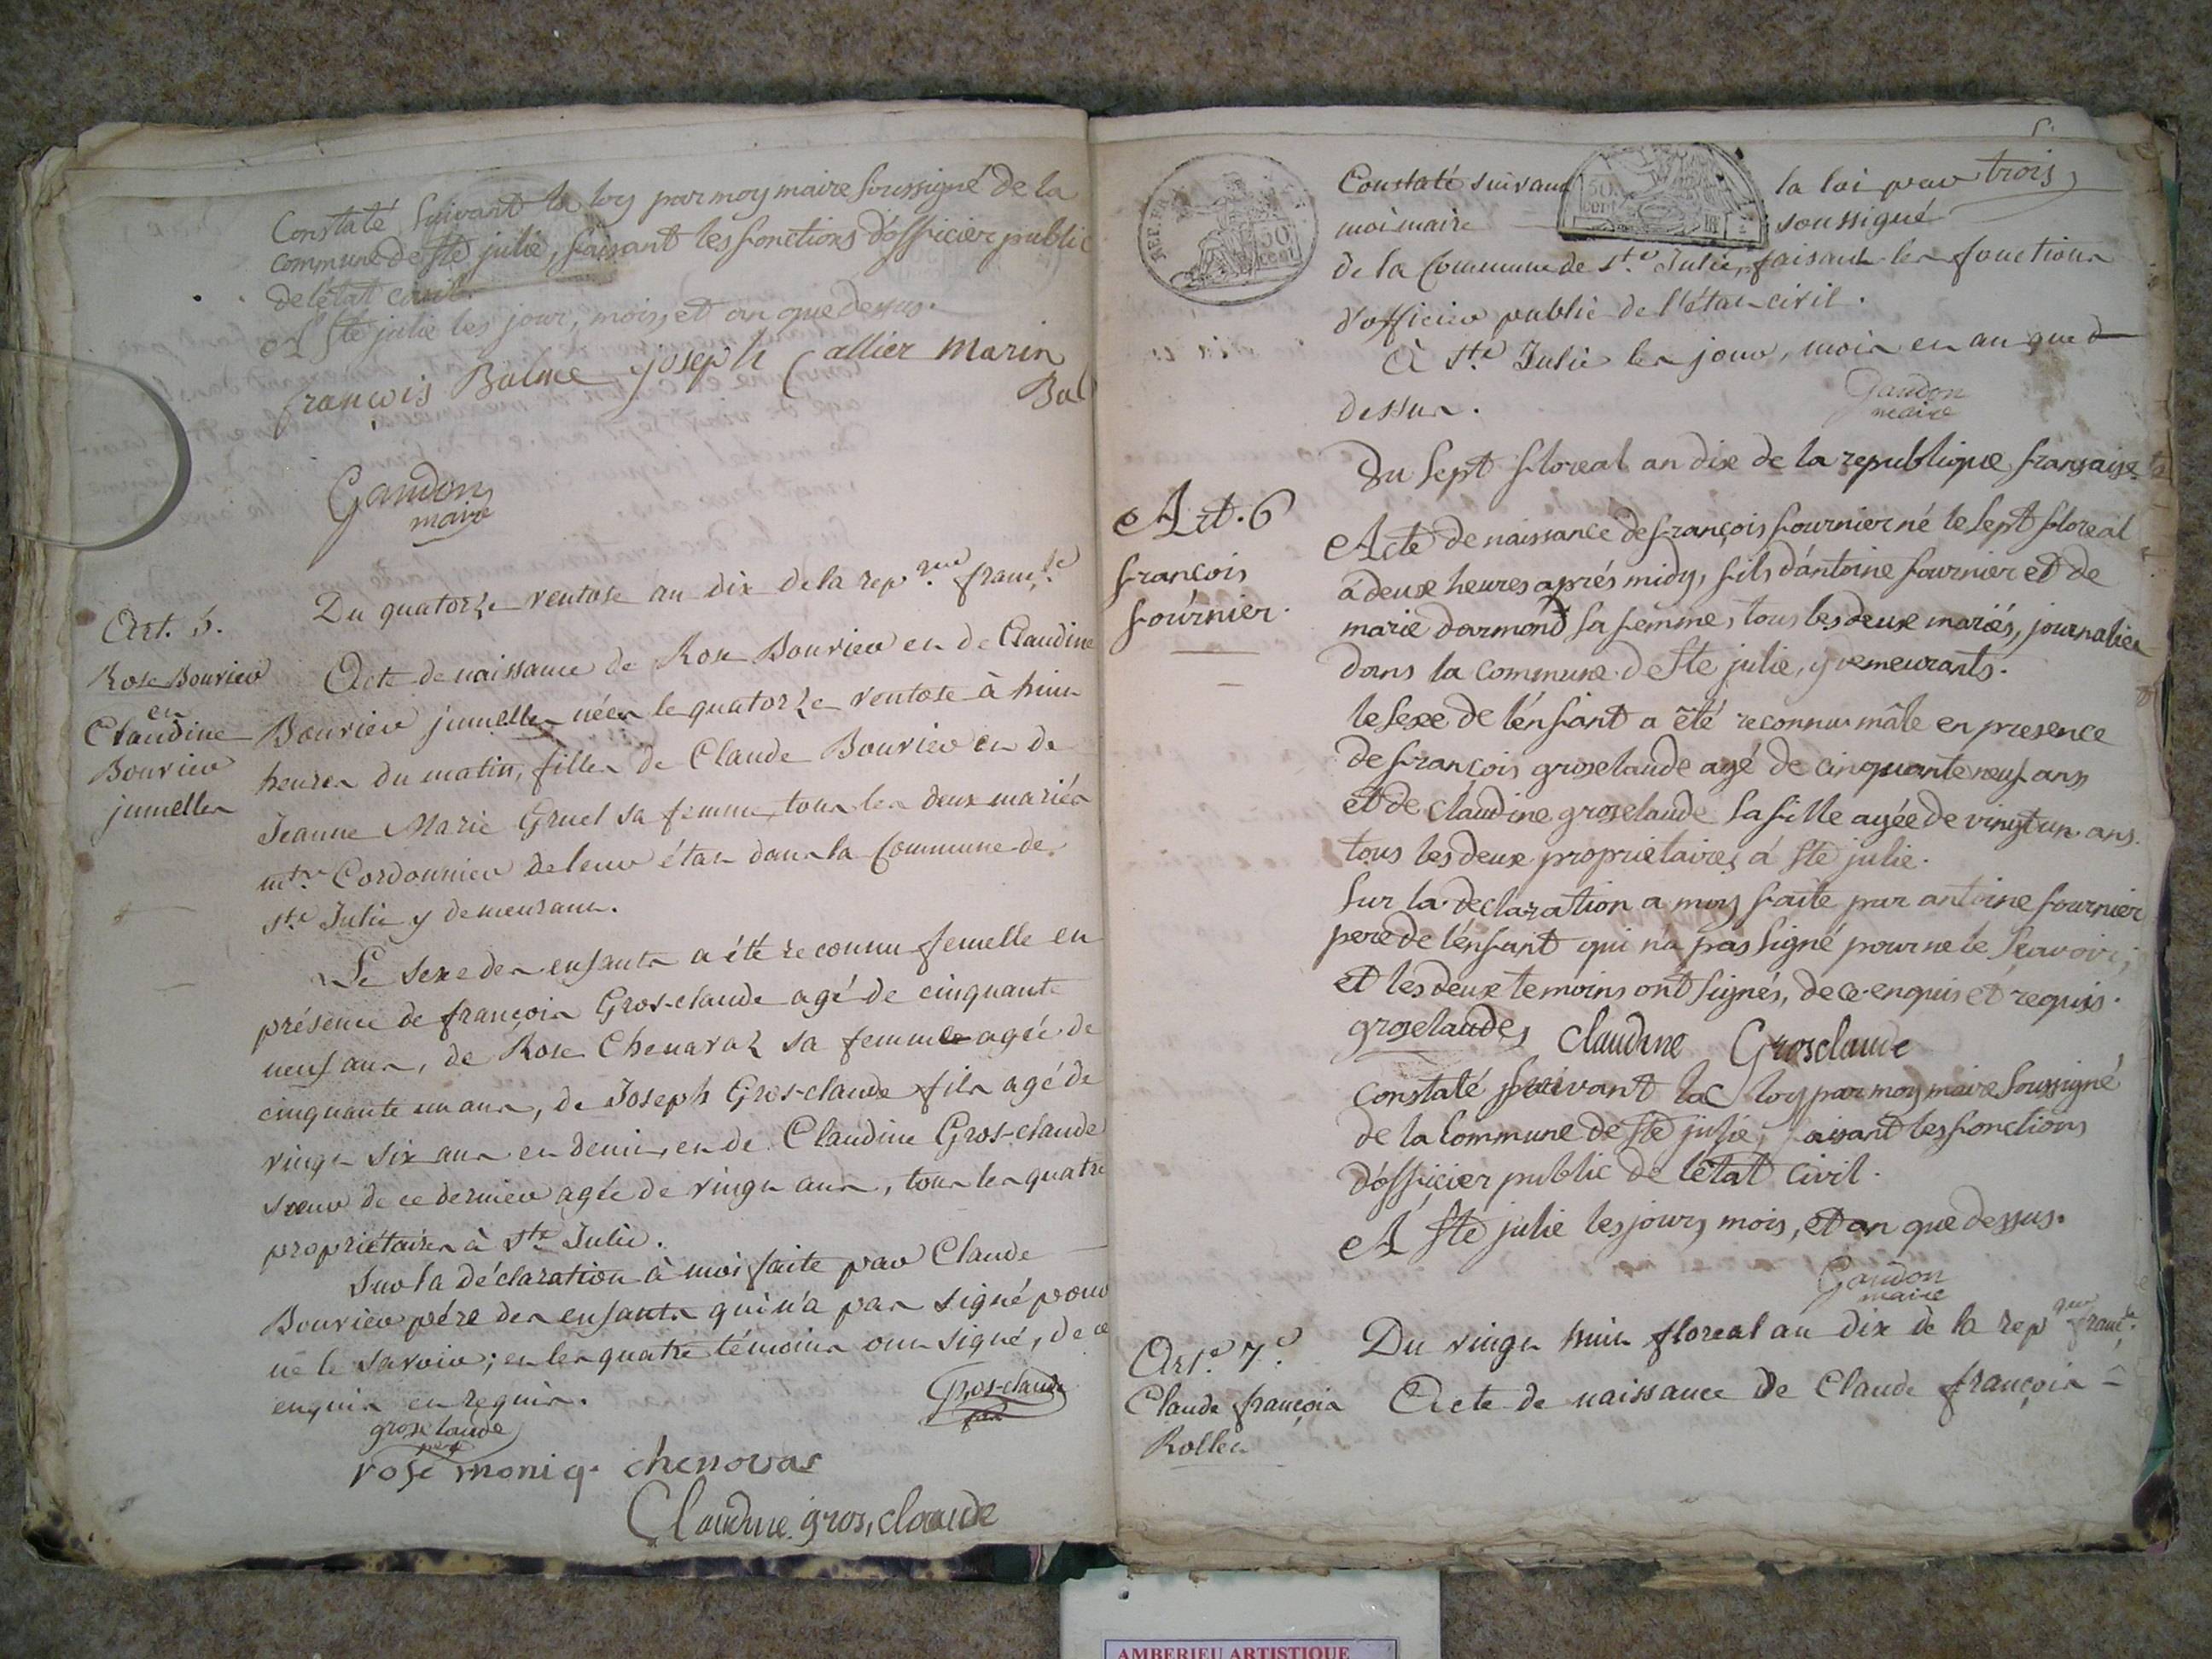 Constaté suivant la loy par moy maire soussigné de la
commune de Ste julie, faisant les fonctions d'officier public
de létat civil.
A Ste julie les jour, mois, et an que dessus.
françois Balme joseph Callier Marin
Bal
Gaudon
maire
Art. 5.
Rose Bourier
et
Claudine
Bourier
jumelles
Du quatorze ventose an dix de la rep.que franç.se
Acte de naissance de Rose Bourier et de Claudine
Bourier jumelles nées le quatorze ventose à huit
heures du matin, filles de Claude Bourier et de
Jeanne Marie Gruel sa femme, tous les deux mariés
m.tre Cordonnier de leur état dans la Commune de
S.te Julie y demeurant.
Le sexe des enfants a été reconnu femelle en
présence de françois Gros-claude agé de cinquante
neuf ans, de Rose Chenavaz sa femme agée de
cinquante un ans, de Joseph Gros-claude fils agé de
vingt six ans et demi, et de Claudine Gros-claude
sœur de ce dernier agée de vingt ans, tous les quatre
propriétaires à S.te Julie.
Sur la déclaration à moi faite par Claude
Bourier pére des enfants qui n'a pas signé pour
ne le savoir; et les quatre témoins ont signé, de ce
enquis et requis.
Gros-claude
fils
grosclaude
pere
rose moniq. chenovas
Claudine gros,claude
5.
REP. FRA
50
cent
50
cent
Constaté suivant la loi par trois
moi maire soussigné
de la Commune de S.te Julie, faisant les fonctions
d'officier public de l'état civil.
A S.te Julie les jour, mois et an que d
dessus.
Gaudon
maire
Du sept floreal an dix de la republique française
Art. 6
françois
fournier.
Acte de naissance de françois fournier né le sept floreal
a deux heures aprés midy, fils d'antoine fournier et de
marie darmond sa femme, tous les deux mariés, journalier
dans la commune de Ste julie, y demeurants.
le sexe de l'énfant a été reconnu mâle en presence
de françois grosclaude agé de cinquante neuf ans
et de claudine grosclaude sa fille agée de vingt un ans.
tous les deux proprietaires á Ste julie.
sur la declaration a moy faite par antoine fournier
pere de l'énfant qui n'a pas signé pour ne le sçavoir;
et les deux temoins ont signés, de ce enquis et requis.
grosclaude Claudine Grosclaude
constaté suivant la loy par moy maire soussigné
de la Commune de Ste julie, faisant les fonctions
d'officier public de létat civil.
A Ste julie les jours mois, et an que dessus.
Gaudon
maire
Art.e 7.e
Claude françois
Rollet
Du vingt huit floreal an dix de la rep.que franc.se
Acte de naissance de Claude françois
AMBERIEU ARTISTIQUE